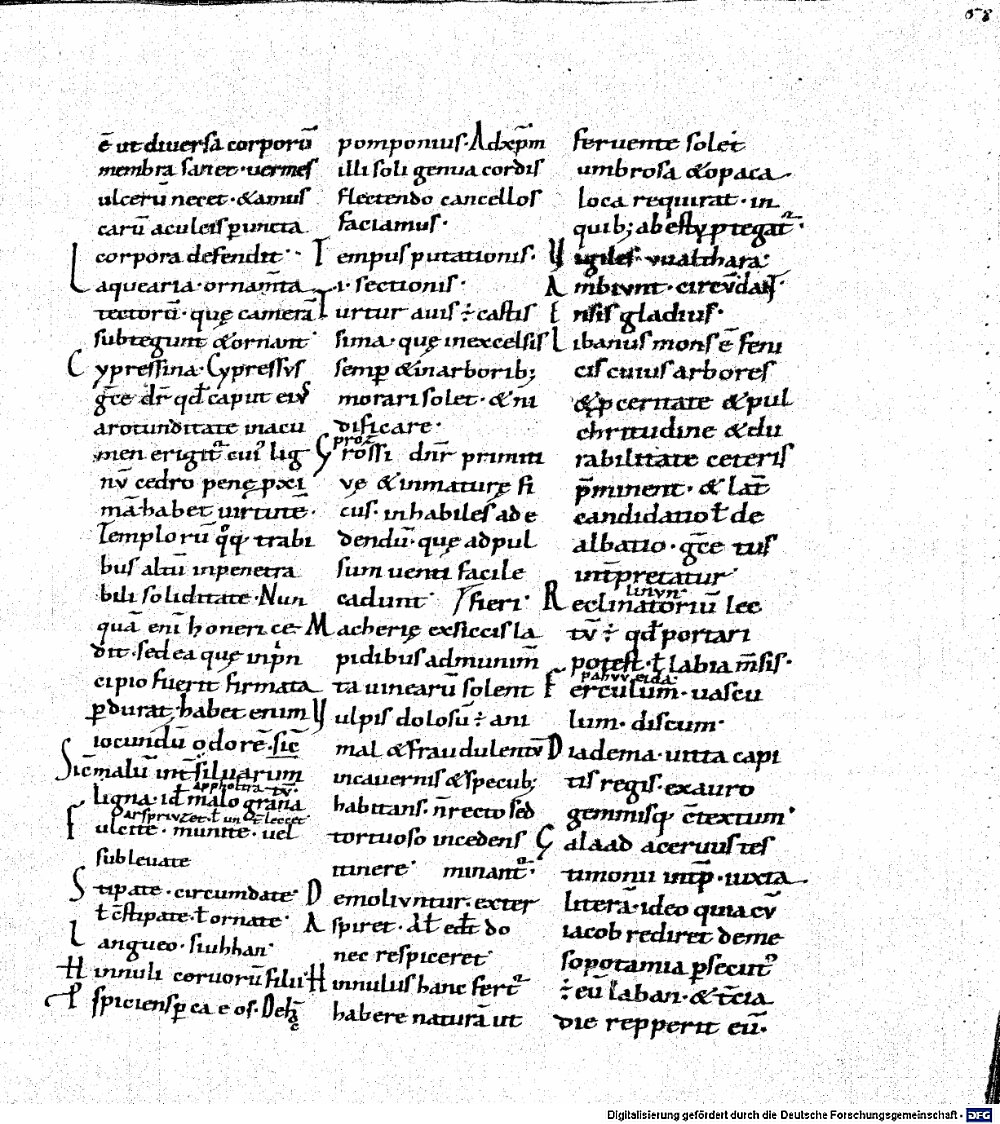 58
ē ut diuersa corporū
membra sanet · uermes
ulcerū necet · & amus
carū aculeis puncta
corpora defendit ·
Laquearia · ornam̄ta
tectorū · quę camerā
subtegunt & ornant
Cypressina · Cypressus
gr̄ce dr̄ qđ caput eius
a rotunditate in acu
men erigit᷑ cui᷒ lig
nū cedro penę ꝓxi
mā habet uirtutē ·
Templorū qͦqꝫ trabi
bus altū inpenetra
bili soliditate · Nun
quā eni honeri ce
dit · sed ea quę in prin
cipio fuerit firmata
ꝑdurat · habet enim
iocundū odorē · sic̄
Sic̄ malū int̄ siluarum
appholtra
ligna · id̄ malo grana
Fulcite · munite · uel
subleuate
Stipate · circumdate
ł c̄stipate · ł ornate ·
Langueo · siuhhan
Hinnuli ceruorū filii
ꝓspiciens ꝑ ca e os ·
pomponius · Ad xp̄m
illi soli genua cordis
flectendo cancellos
faciamus ·
Tempus putationis ·
i · sectionis ·
Turtur auis ÷ castis
sima · quę in excelsis
semꝑ & in arboribꝫ
morari solet · & ni
dificare ·
proz
Grossi dn̄r primiti
vę & inmaturę fi
cus · inhabiles ad e
dendū · quę ad pul
sum uenti facile
cadunt fieri ·
Macherię ex siccis la
pidibus ad munim̄
ta uinearū solent
Vulpis dolosū ÷ ani
mal & fraudulentū
in cauernis & specubꝫ
habitans · n̄ recto sed
tortuoso incedens
itinere minant᷑ ·
Demoliuntur · exter
Aspiret · Ał edł do
nec respiceret
Hinnulus hanc fert᷑
habere naturā ut
feruente solei
umbrosa & opaca
loca requirat · in
quibꝫ ab estu ꝓtegat᷑ ·
Vigiles · uualthara
Ambiunt · circūdant
Ensis gladius ·
Libanus mons ē feni
cis cuius arbores
& ꝓceritate & pul
chritudine & du
rabilitate ceteris
p̄minent · & lat̄
candidatio ł de
albatio · gr̄ce tus
int̄pretatur
linun
Reclinatoriū lec
tū ÷ qđ portari
potest · ł labia m̄sis ·
Ferculum · uascu
lum · discum ·
Diadema · uitta capi
tis regis · ex auro
gemmisqꝫ c̄textum ·
Galaad aceruus tes
timonii int̄p · iuxta
literā · ideo quia cū
iacob rediret de me
sopotamia ꝑsecut᷒
÷ eū laban · & t̄cia
die repperit eū ·
Digitalisierung gefördert durch die Deutsche Forschungsgemeinschaft · DFG